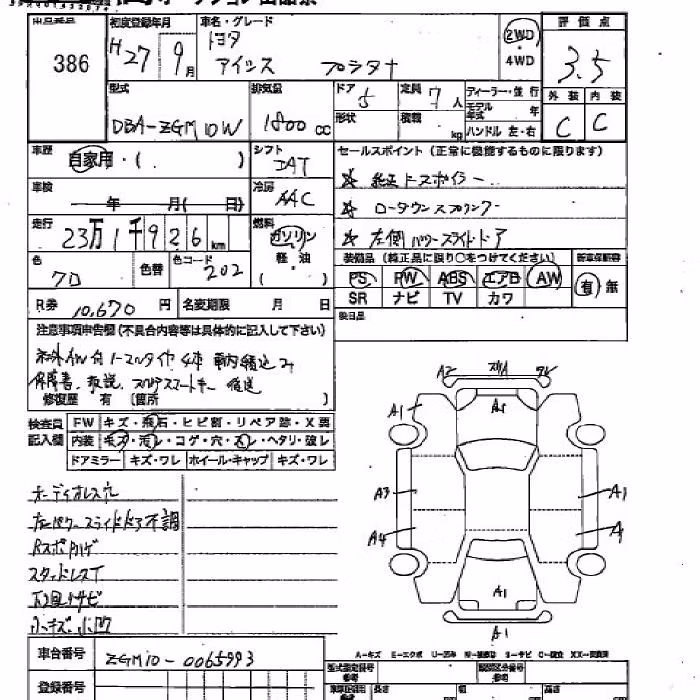 出品番号 初度登録年月 車名・グレード 評価点
386 H27 9月 トヨタ 2WD
アイシス プラタナ ・4WD 3.5
型式 排気量 ドア 5 定員 7人 ディーラー・並行 外装 内装
DBA-ZGM10W 1800cc 形状 積載 kg モデル年式 年 C C
ハンドル 左・右
車歴 自家用・( ) シフト DAT セールスポイント (正常に機能するものに限ります)
☆ 純正
車検 年 月( 日) 冷房 AAC ☆ ローダウンスプリング
走行 23万1千926km 燃料 ガソリン ☆ 左側パワースライドドア
軽油
( )
装備品 (純正品に限り○をつけてください) 新車保証書
色 7D 色替 色コード 202 PS PW ABS エアB AW 有・無
SR ナビ TV カワ
R券 10,670円 名変期限 月 日 検
注意事項申告欄 (不具合内容等は具体的に記入して下さい)
社外AW付ノーマルタイヤ4本 車内積込み
保障書、取説、スペアスマートキー
修復歴 有 〔箇所 〕
検査員 FW キズ・飛石・ヒビ割・リペア跡・X要
記入欄 内装 キズ・汚レ・コゲ・穴・スレ・ヘタリ・破レ
ドアミラー キズ・ワレ ホイール・キャップ キズ・ワレ
A2 スリA
A1 A2
A3 A1
A4 A
A1
A1
オーディオレス
左パワースライドドア不調
Rスポハゲ
スタッドレスT
下廻りサビ
小キズ・小凹
A-キズ E-エクボ U-凹み S-サビ
車台番号 ZGM10-0065993 型式指定番号 類別区分番号
参考 参考
登録番号 長さ 幅 高さ